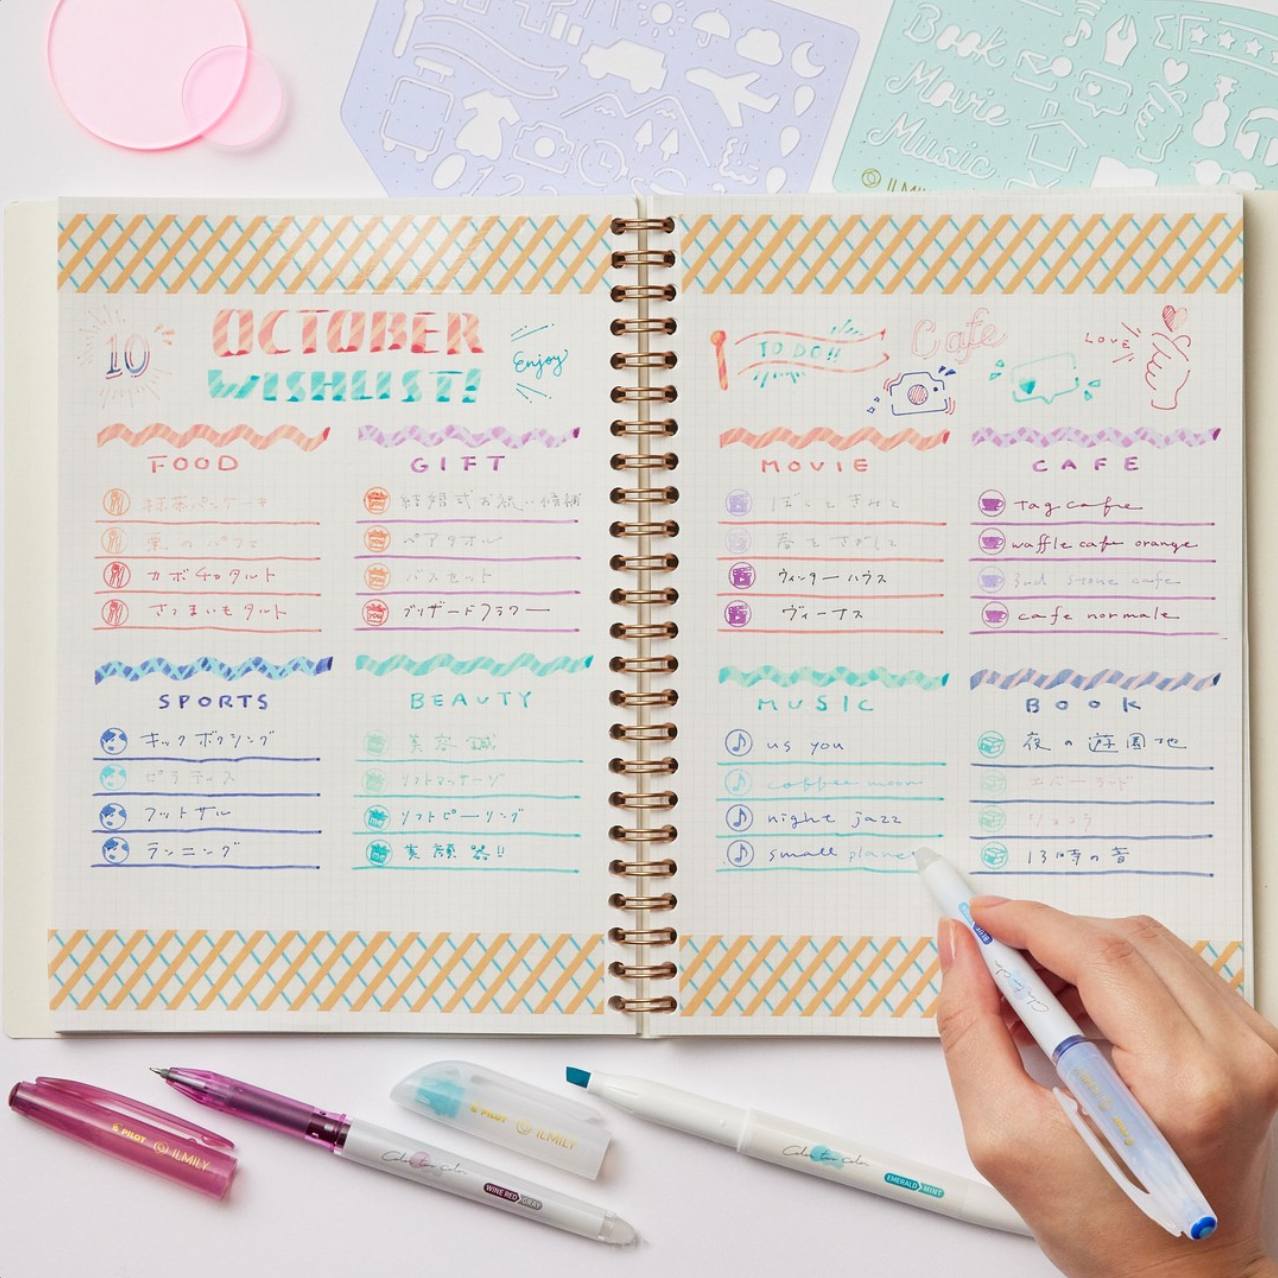 Book
Movie
Music
ILMILY
10
OCTOBER
WISHLIST!
Enjoy
FOOD
抹茶パンケーキ
栗のパフェ
カボチャタルト
さつまいもタルト
GIFT
結婚式お祝い候補
ペアタオル
バスセット
ブリザードフラワー
SPORTS
キックボクシング
ピラティス
フットサル
ランニング
BEAUTY
美容鍼
リフトマッサージ
リフトピーリング
美顔器!!
TO DO!!
Cafe
LOVE
MOVIE
ぼくときみと
春をさがして
ウィンターハウス
ヴィーナス
CAFE
tag cafe
waffle cafe orange
3nd stone cafe
cafe normale
MUSIC
us you
coffee moon
night jazz
small plane
BOOK
夜の遊園地
エバーランド
ショコラ
13時の音
PILOT ILMILY
Color two Color
WINE RED GRAY
PILOT ILMILY
Color two Color
EMERALD MINT
Color two Color